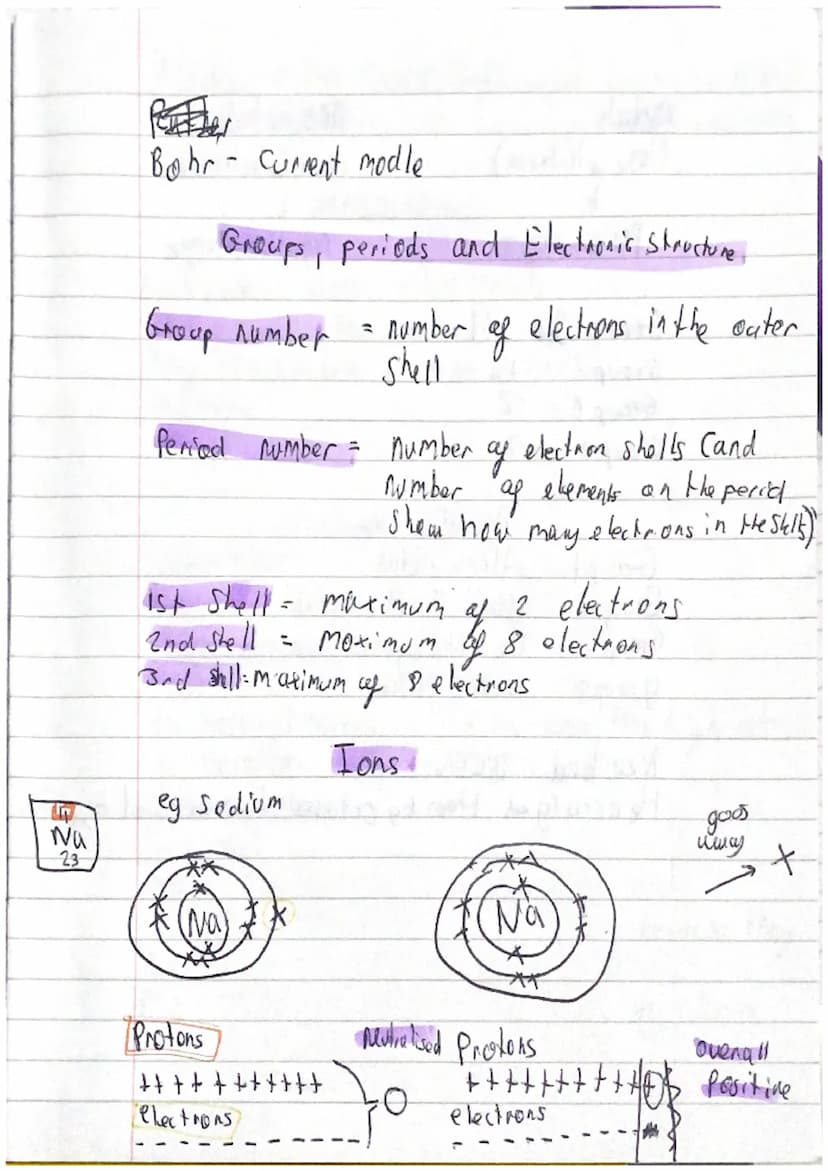 Bohr - Current modle
Groups, periods and Electronic structure
Group number = number of electrons in the outer
shell
Period number = number of electron shells (and
number of elements on the period
show how many electrons in the shells)
1st shell = maximum of 2 electrons
2nd shell = moximum of 8 electrons
3rd shll = maximum of 8 electrons
Ions
eg sodium
11
Na
23
goes
away
x
Na
Na
Protons
Protons
overall
positive
+++++++++++
+++++++++++
0
electrons
electrons